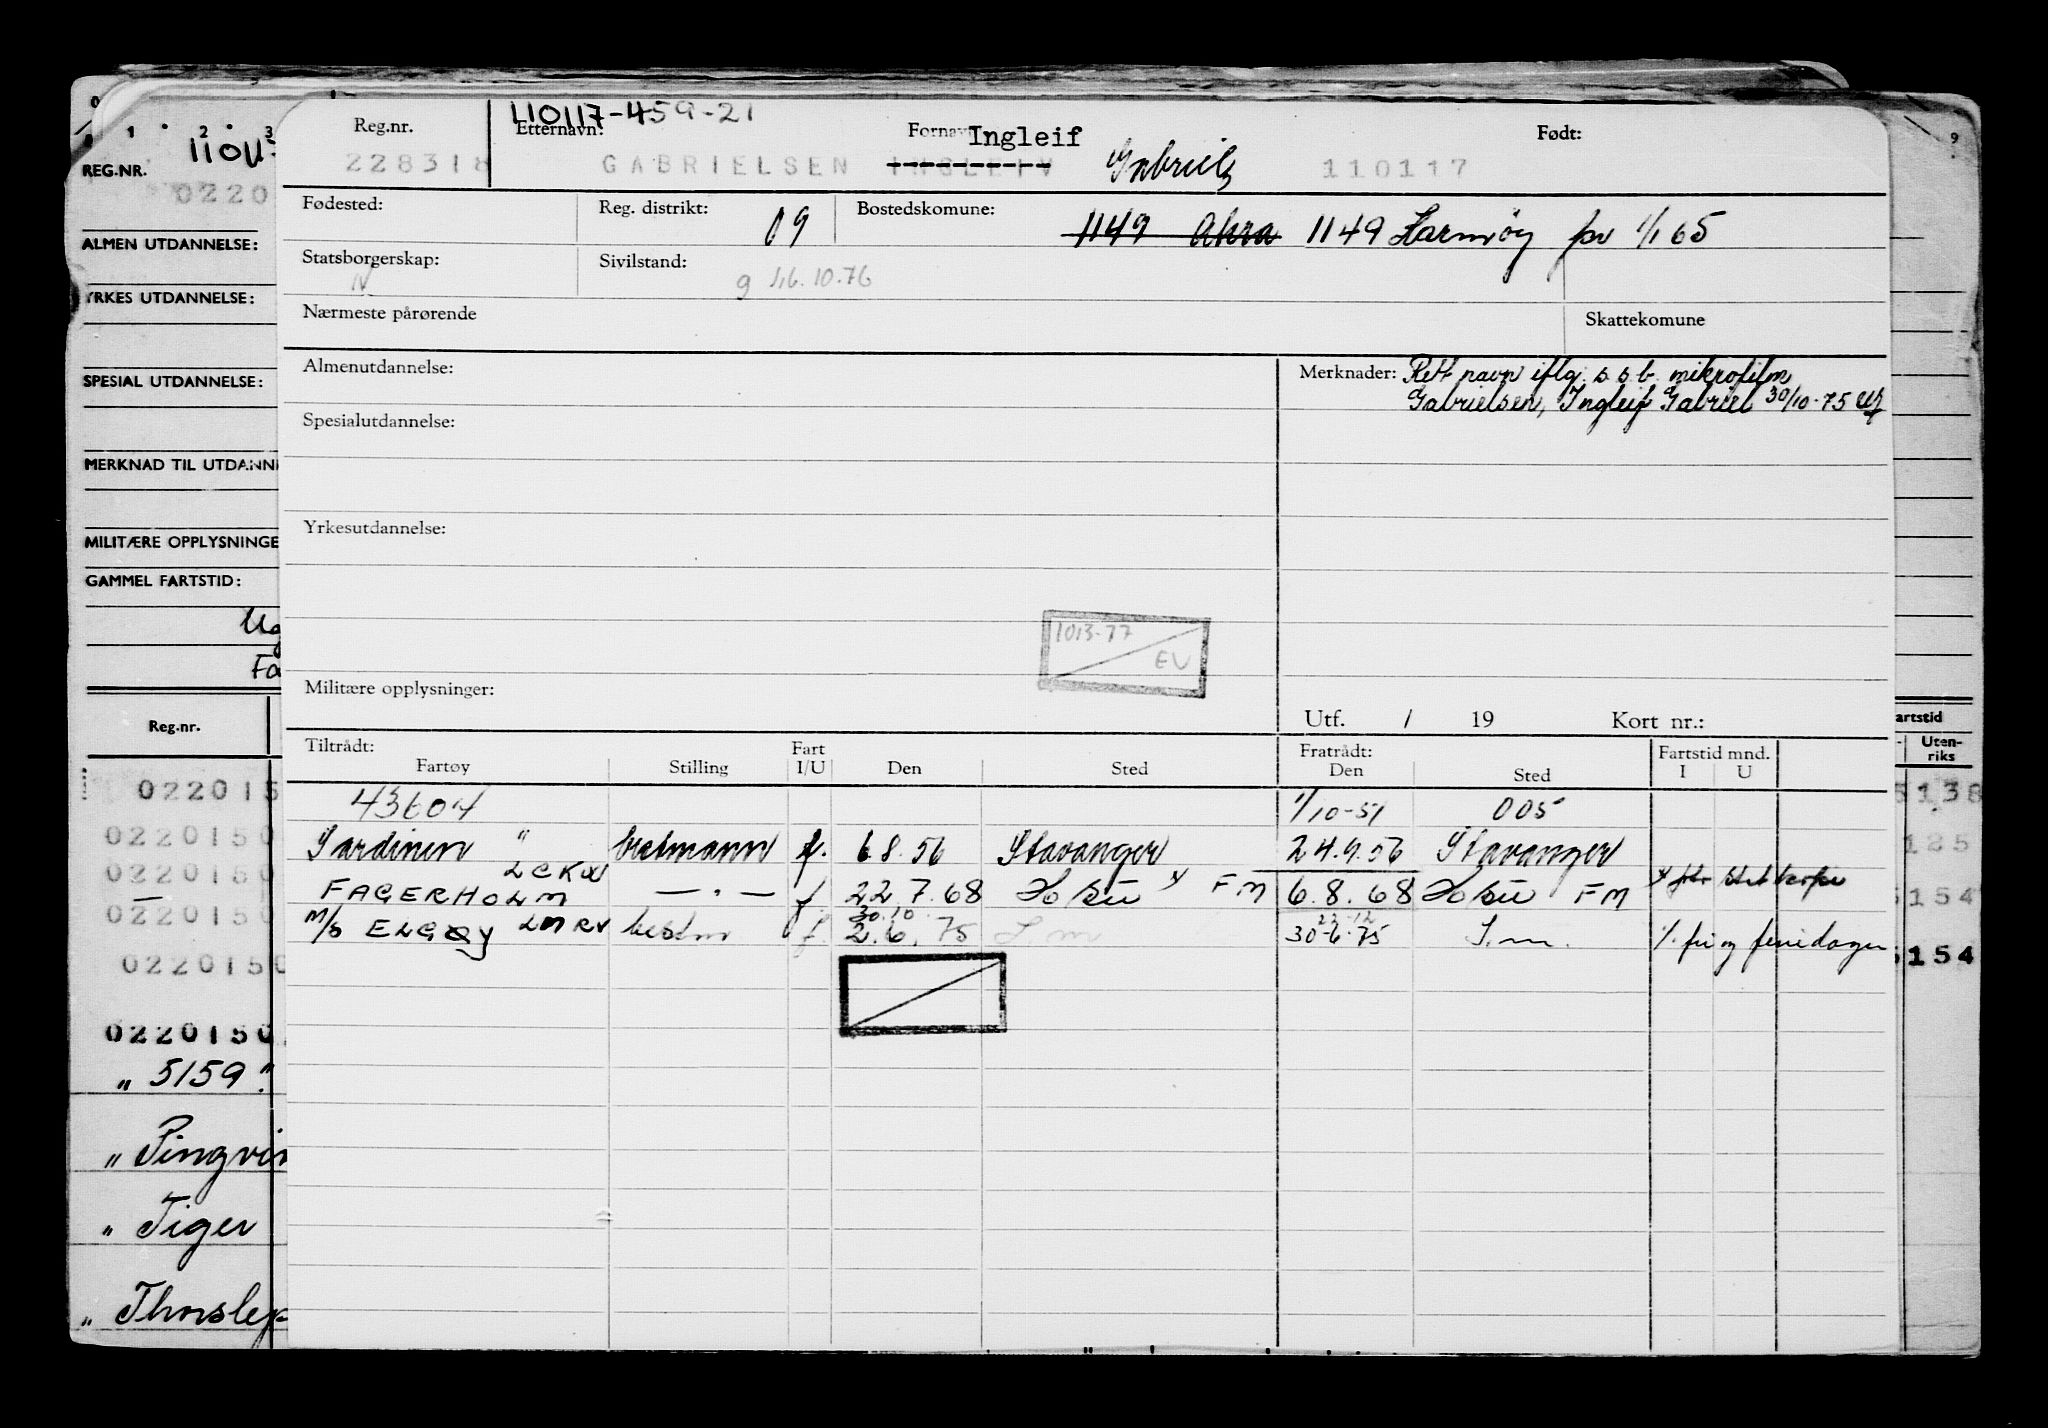 110117-459-21
Reg.nr. Etternavn: Fornavn Ingleif Født:
228318 GABRIELSEN INGLEIV Gabriel 110117
Fødested: Reg. distrikt: 09 Bostedskomune: 1149 Akra 1149 Karmøy pr 1/1 65
Statsborgerskap: N Sivilstand: g 16.10.76
Nærmeste pårørende Skattekomune
Almenutdannelse: Merknader: Rett navn iflg. s.s.b. mikrofilm
Gabrielsen, Ingleif Gabriel 30/10-75
Spesialutdannelse:
Yrkesutdannelse:
1013-77
EV
Militære opplysninger:
Utf. / 19 Kort nr.:
Tiltrådt: Fart Fratrådt: Fartstid mnd.
Fartøy Stilling I/U Den Sted Den Sted I U
43604 1/10-51 005
Sardinen " bestmann f. 6.8.56 Stavanger 24.9.56 Stavanger
FAGERHOLM LCKW — " — f 22.7.68 FM 6.8.68 FM
30.10 23.12
M/S ELGØY LMRV bestm f. 2.6.75 S.m 30-6-75 S.m. fri og feriedager
0 1 2 3
REG.NR. 1101
0220
ALMEN UTDANNELSE:
YRKES UTDANNELSE:
SPESIAL UTDANNELSE:
MERKNAD TIL UTDANN
MILITÆRE OPPLYSNINGE
GAMMEL FARTSTID:
Reg.nr.
022015
0220150
0220150
0220150
0220150
0220150
" 5159 "
" Pingvin
" Tiger
" Thorslep
9
artstid
Uten-
riks
5138
125
5154
5154